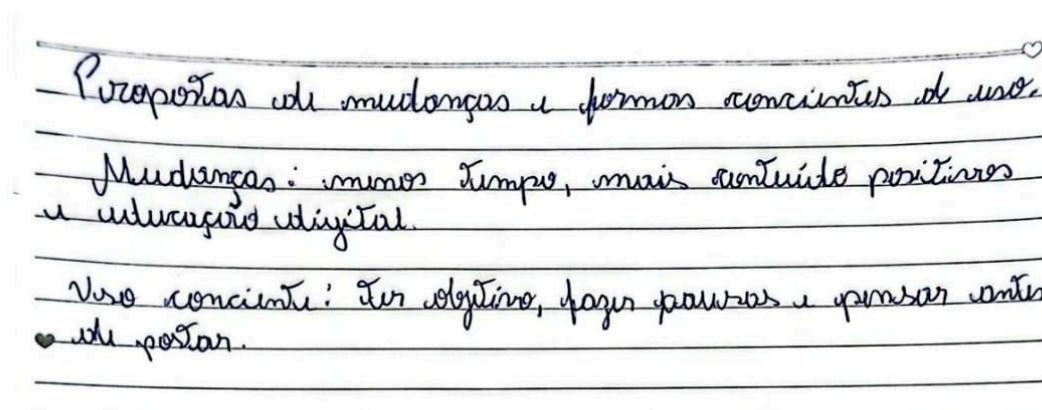 Propostas de mudanças e formas concientes de uso.
Mudanças: menos tempo, mais conteúdo positivos
e educação digital.
Uso conciente: Ter objetivo, fazer pausas e pensar antes
de postar.